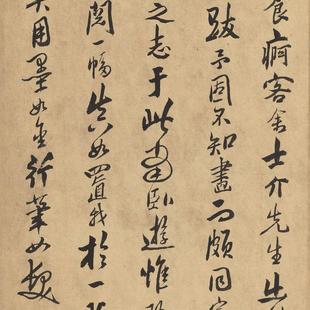 食痾客舍士介先生出
跋予固不知畫而頗同宗
之志于此當臥遊惟
閱一幅告如置我於一
用墨如金行筆如